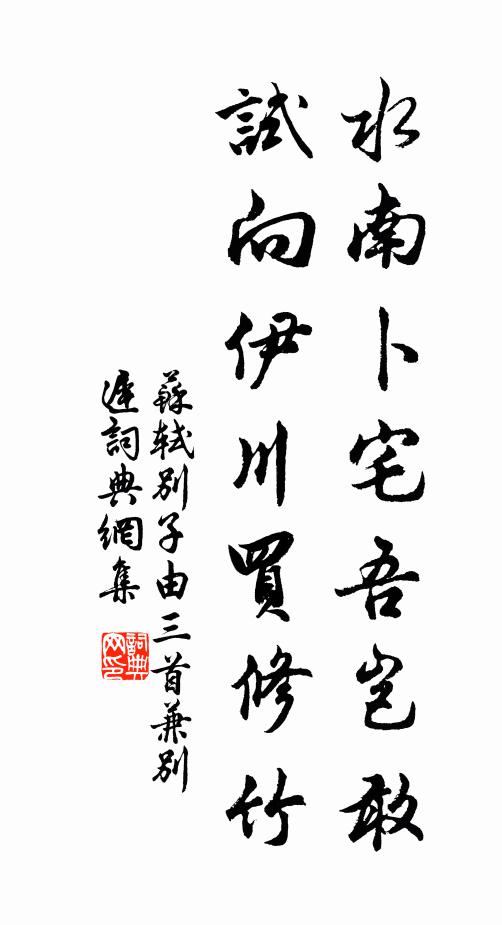 水南卜宅吾豈敢
試向伊川買修竹
蘇軾別子由三首兼別
遲詞典網集
詞典網印